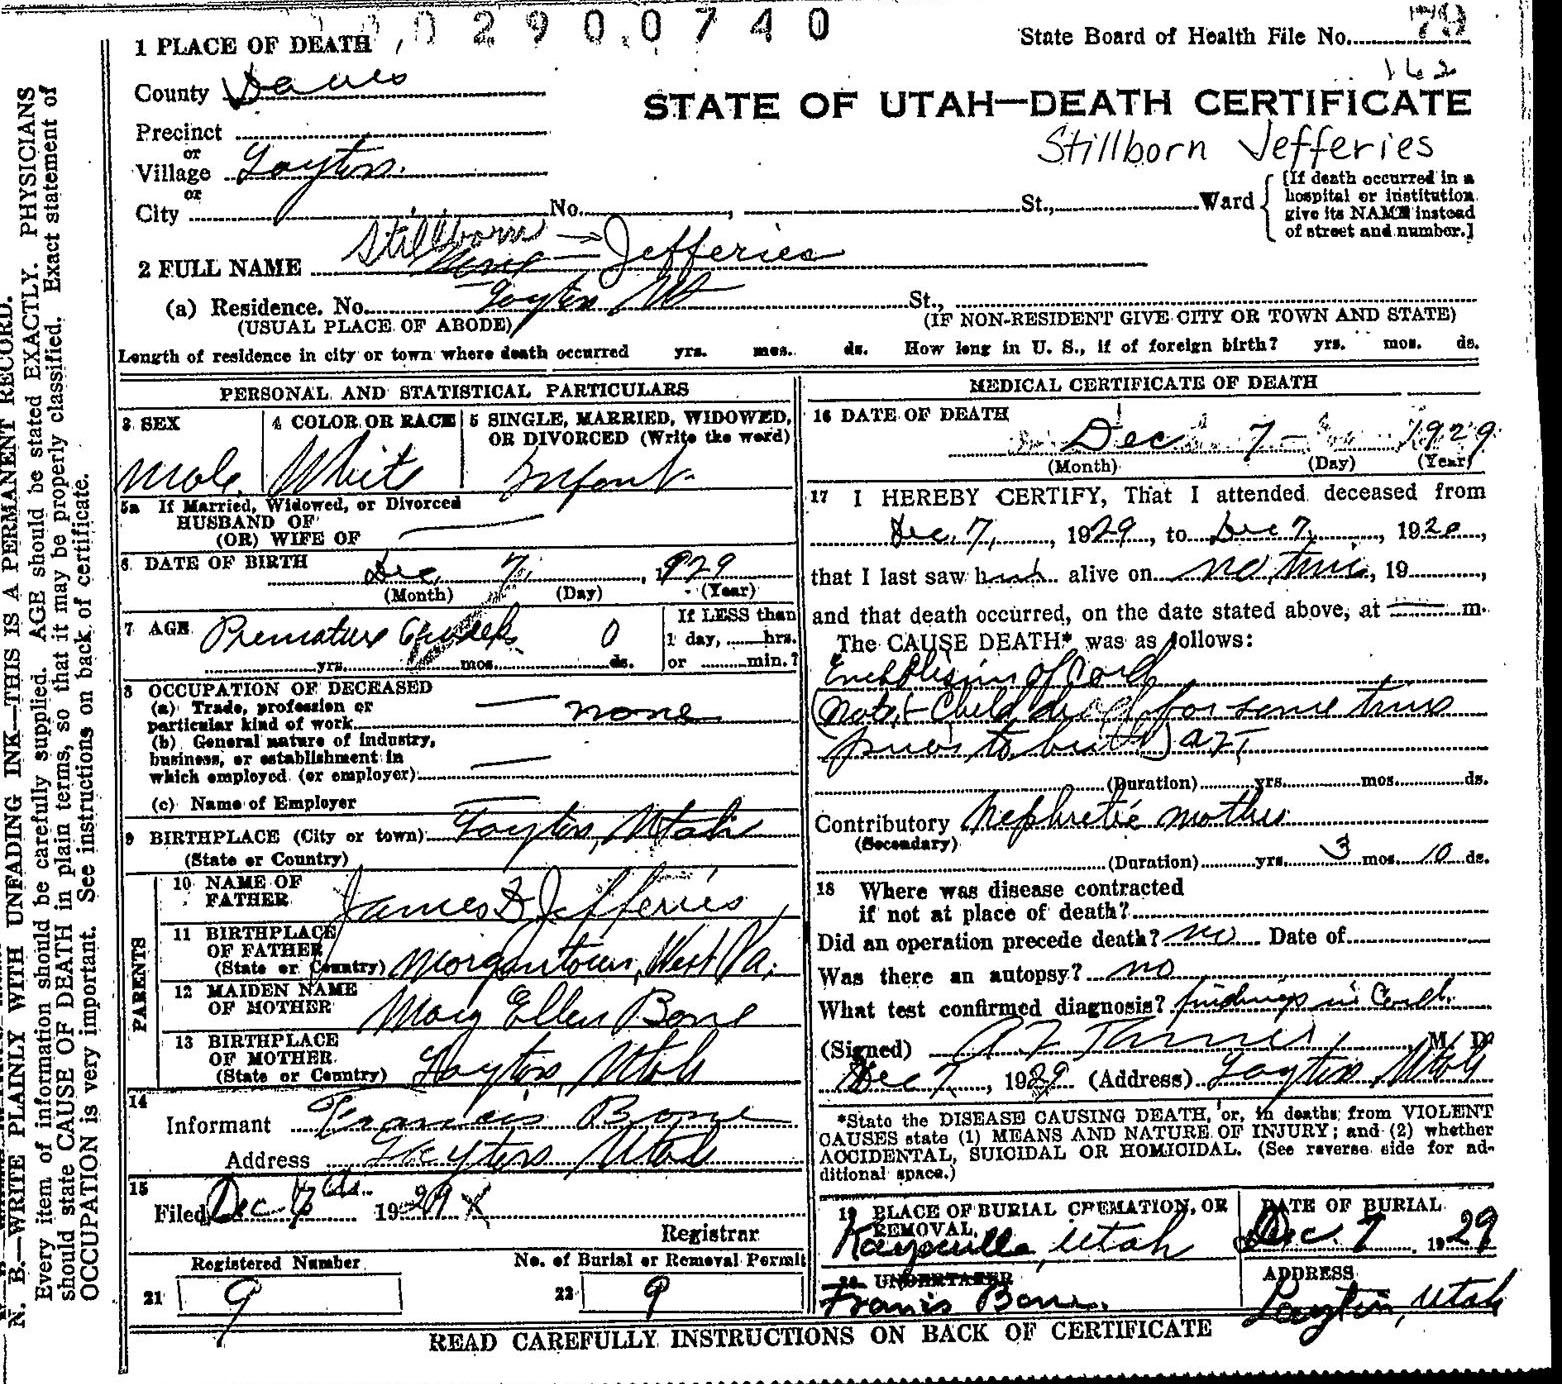 0 0 2 9 0 0 7 4 0
1 PLACE OF DEATH
State Board of Health File No. 79
162
County Davis
STATE OF UTAH—DEATH CERTIFICATE
Stillborn Jefferies
Precinct
or
Village Layton.
or
City No. , St., Ward
[If death occurred in a hospital or institution give its NAME instead of street and number.]
Stillborn → Jefferies
2 FULL NAME
(a) Residence. No. Layton, Ut St.,
(USUAL PLACE OF ABODE) (IF NON-RESIDENT GIVE CITY OR TOWN AND STATE)
Length of residence in city or town where death occurred yrs. mos. ds. How long in U. S., if of foreign birth? yrs. mos. ds.
PERSONAL AND STATISTICAL PARTICULARS
3 SEX
Male
4 COLOR OR RACE
White
5 SINGLE, MARRIED, WIDOWED, OR DIVORCED (Write the word)
Infant
5a If Married, Widowed, or Divorced
HUSBAND OF
(OR) WIFE OF
6 DATE OF BIRTH Dec 7, 1929
(Month) (Day) (Year)
7 AGE Premature 6 weeks 0
yrs. mos. ds.
If LESS than
1 day, hrs.
or min.?
8 OCCUPATION OF DECEASED
(a) Trade, profession or
particular kind of work none
(b) General nature of industry,
business, or establishment in
which employed (or employer)
(c) Name of Employer
9 BIRTHPLACE (City or town) Layton, Utah
(State or Country)
PARENTS
10 NAME OF
FATHER James D Jefferies
11 BIRTHPLACE
OF FATHER
(State or Country) Morgantown, West Va.
12 MAIDEN NAME
OF MOTHER Mary Ellen Bone
13 BIRTHPLACE
OF MOTHER
(State or Country) Layton, Utah
14
Informant Francis Bone
Address Layton Utah
15
Filed Dec 7th 1929 X
Registrar
Registered Number
21 9
No. of Burial or Removal Permit
22 9
MEDICAL CERTIFICATE OF DEATH
16 DATE OF DEATH
Dec 7 1929
(Month) (Day) (Year)
17 I HEREBY CERTIFY, That I attended deceased from
Dec. 7, 1929, to Dec 7, 1920,
that I last saw h alive on no time, 19 ,
and that death occurred, on the date stated above, at m.
The CAUSE DEATH* was as follows:
of Cord
(Note - Child dead for some time
prior to birth) AZT
(Duration) yrs. mos. ds.
Contributory Nephretic mother
(Secondary)
(Duration) yrs. 3 mos. 10 ds.
18 Where was disease contracted
if not at place of death?
Did an operation precede death? no Date of
Was there an autopsy? no
What test confirmed diagnosis? findings in Cord.
(Signed) AZ Tanner, M. D
Dec 7, 1929 (Address) Layton Utah
*State the DISEASE CAUSING DEATH, or, in deaths from VIOLENT
CAUSES state (1) MEANS AND NATURE OF INJURY; and (2) whether
ACCIDENTAL, SUICIDAL OR HOMICIDAL. (See reverse side for ad-
ditional space.)
19 PLACE OF BURIAL CREMATION, OR
REMOVAL,
Kaysville, Utah
DATE OF BURIAL
Dec. 7 1929
20 UNDERTAKER
Franis Bone.
ADDRESS
Layton, Utah
READ CAREFULLY INSTRUCTIONS ON BACK OF CERTIFICATE
N. B.—WRITE PLAINLY WITH UNFADING INK—THIS IS A PERMANENT RECORD.
Every item of information should be carefully supplied. AGE should be stated EXACTLY. PHYSICIANS
should state CAUSE OF DEATH in plain terms, so that it may be properly classified. Exact statement of
OCCUPATION is very important. See instructions on back of certificate.